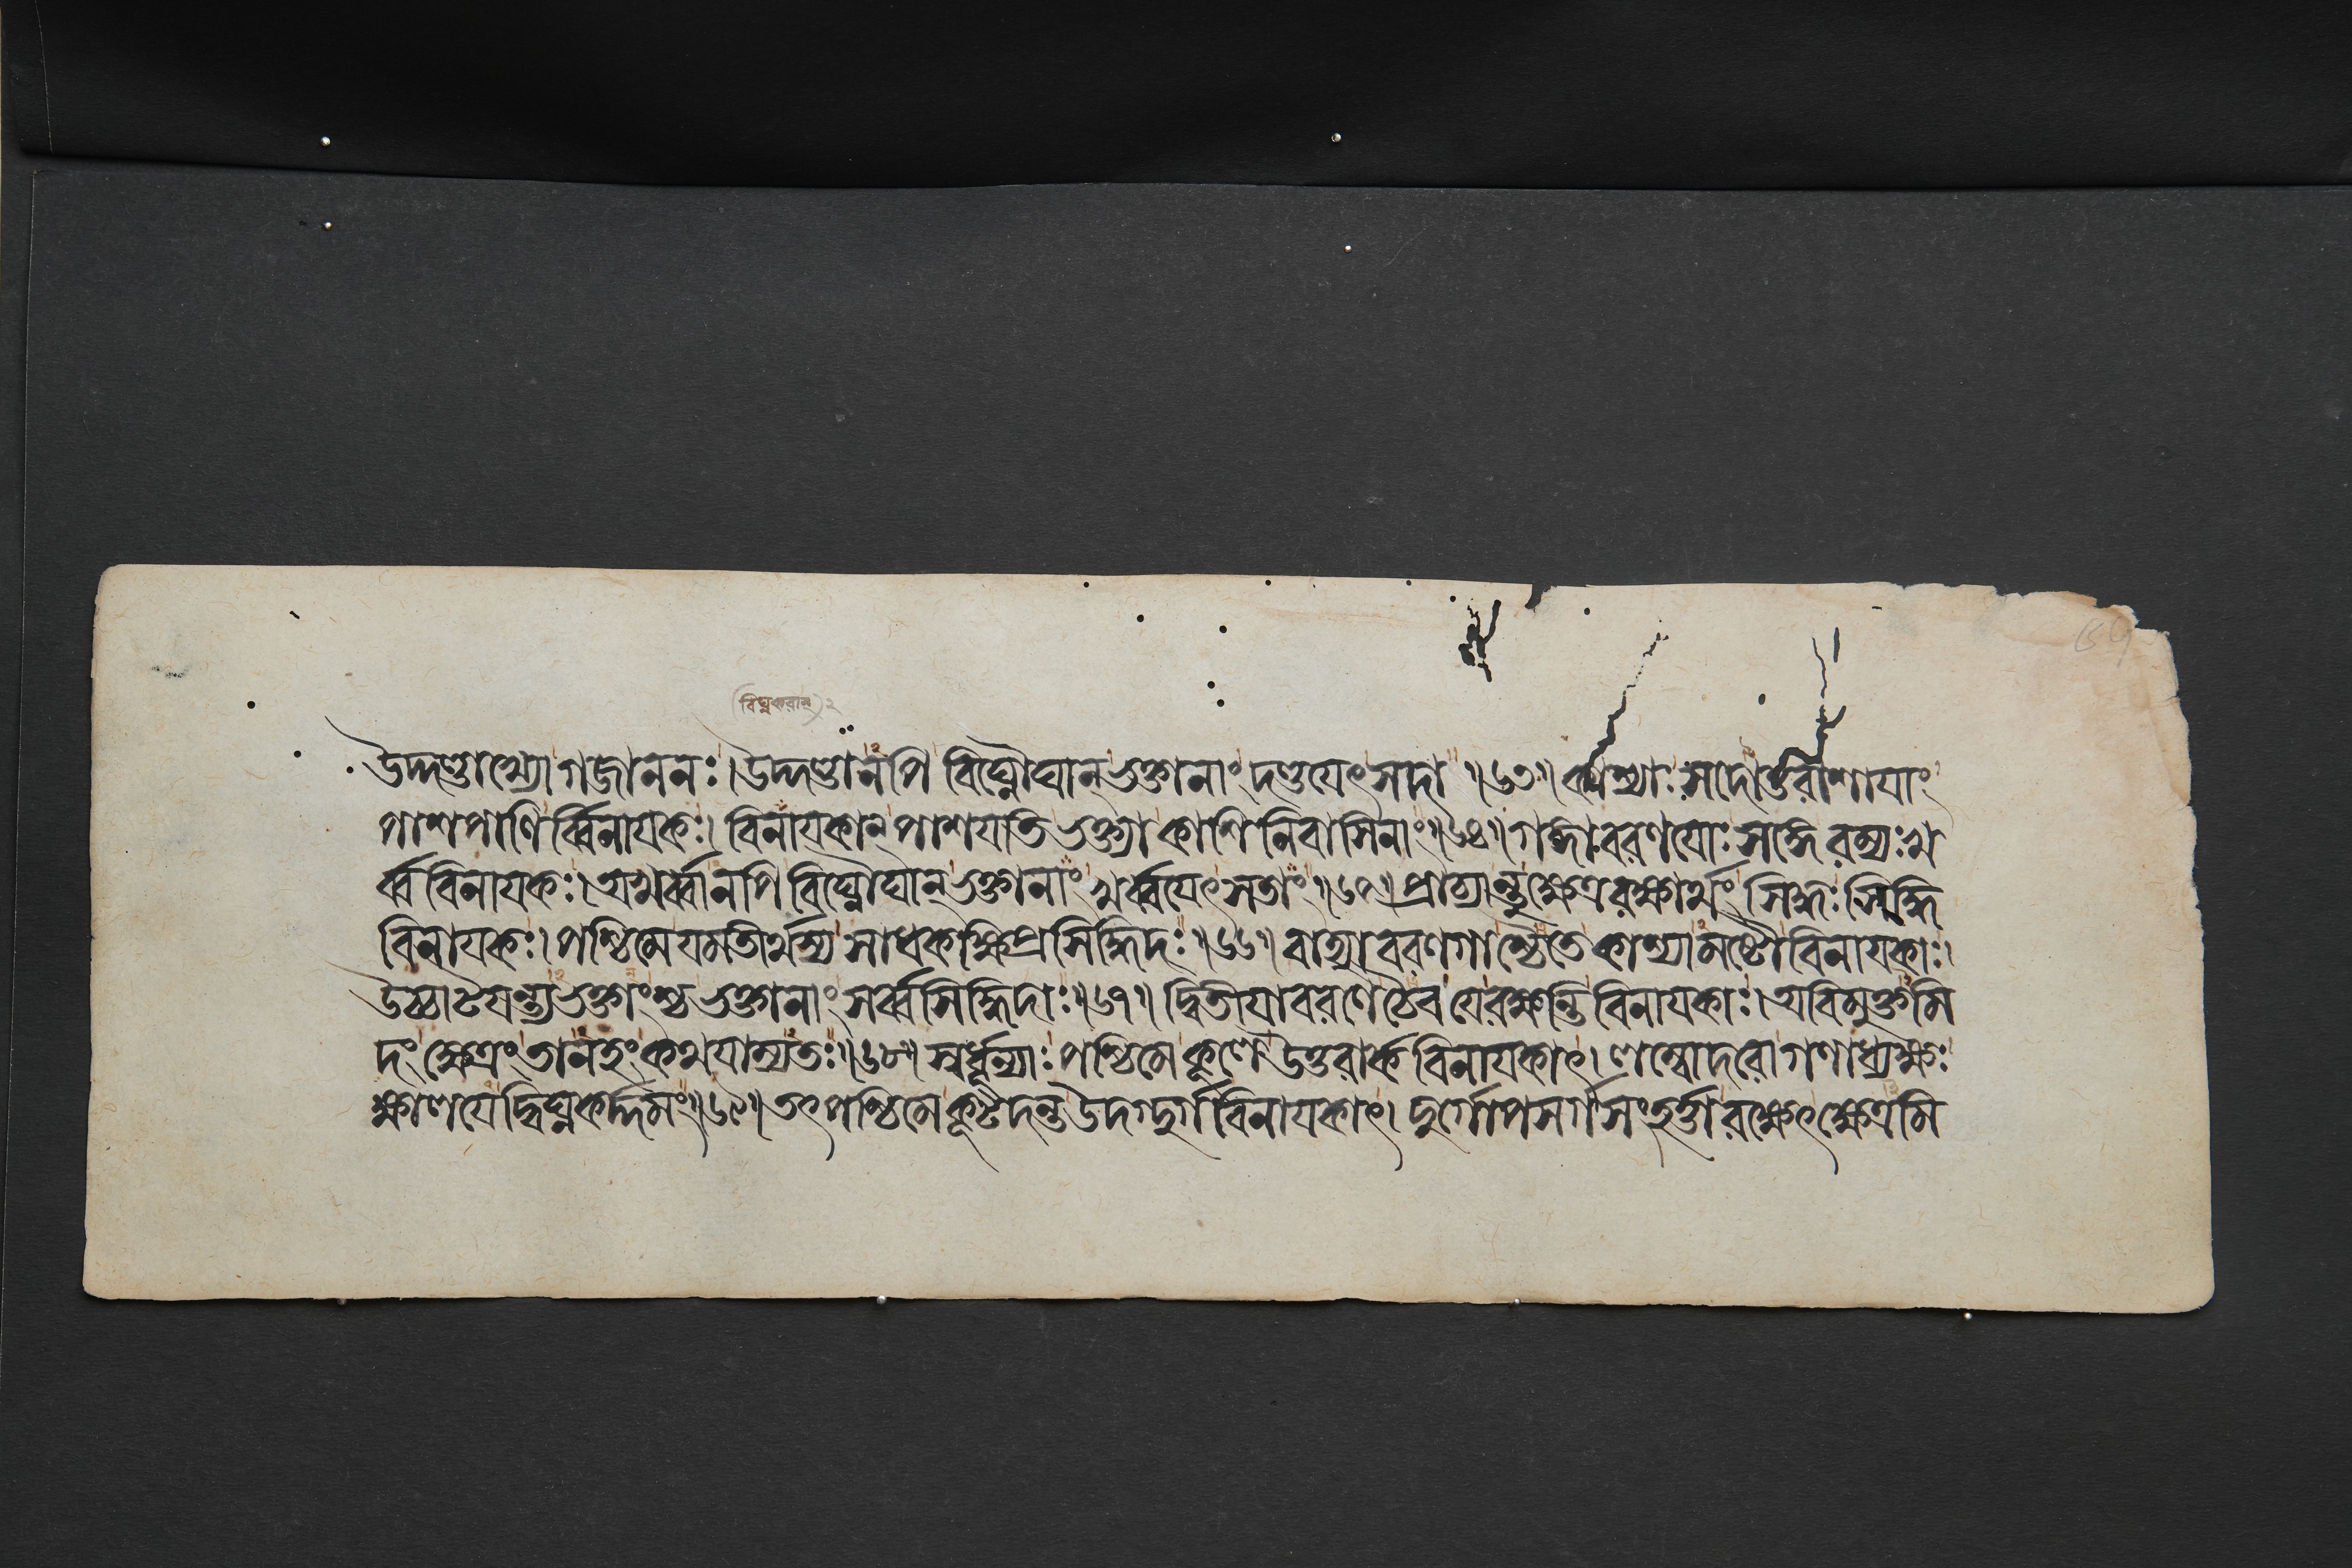 (বিঘ্নকরান্)২
উদ্দণ্ডাখ্যো গজাননঃ। উদ্দণ্ডানপি বিঘ্নৌঘান্ ভক্তানাং দণ্ডযেৎ সদা ॥৬৩॥ কাশ্যাঃ সদোত্তরাশাযাং
পাশপাণির্ব্বিনাযকঃ। বিনাযকান্ পাশযতি ভক্ত্যা কাশিনিবাসিনাং॥৬৪॥ গঙ্গাবরণযোঃ সঙ্গে রম্যঃ খ
র্ব্ববিনাযকঃ। অখর্ব্বানপি বিঘ্নৌঘান্ ভক্তানাং খর্ব্বযেৎ সতাং॥৬৫॥ প্রাচ্যান্তু ক্ষেত্ররক্ষার্থং সিদ্ধঃ সিদ্ধি
বিনাযকঃ। পশ্চিমে যমতীর্থস্য সাধকক্ষিপ্রসিদ্ধিদঃ॥৬৬॥ বাহ্যাবরণগাশ্চৈতে কাশ্যামষ্টৌ বিনাযকাঃ।
উচ্চাটযন্ত্যভক্তাংশ্চ ভক্তানাং সর্ব্বসিদ্ধিদাঃ॥৬৭॥ দ্বিতীযাবরণে চৈব যে রক্ষন্তি বিনাযকাঃ। অবিমুক্তমি
দং ক্ষেত্রং তানহং কথযাম্যতঃ॥৬৮॥ স্বর্ধুন্যাঃ পশ্চিমে কূলে উত্তরার্কবিনাযকাৎ। লম্বোদরো গণাধ্যক্ষঃ
ক্ষালযেদ্বিঘ্নকর্দ্দমং॥৬৯॥ তৎপশ্চিমে কূটদন্ত উদগ্দুর্গবিনাযকাৎ। দুর্গোপসর্গসংহর্ত্তা রক্ষেৎ ক্ষেত্রমি